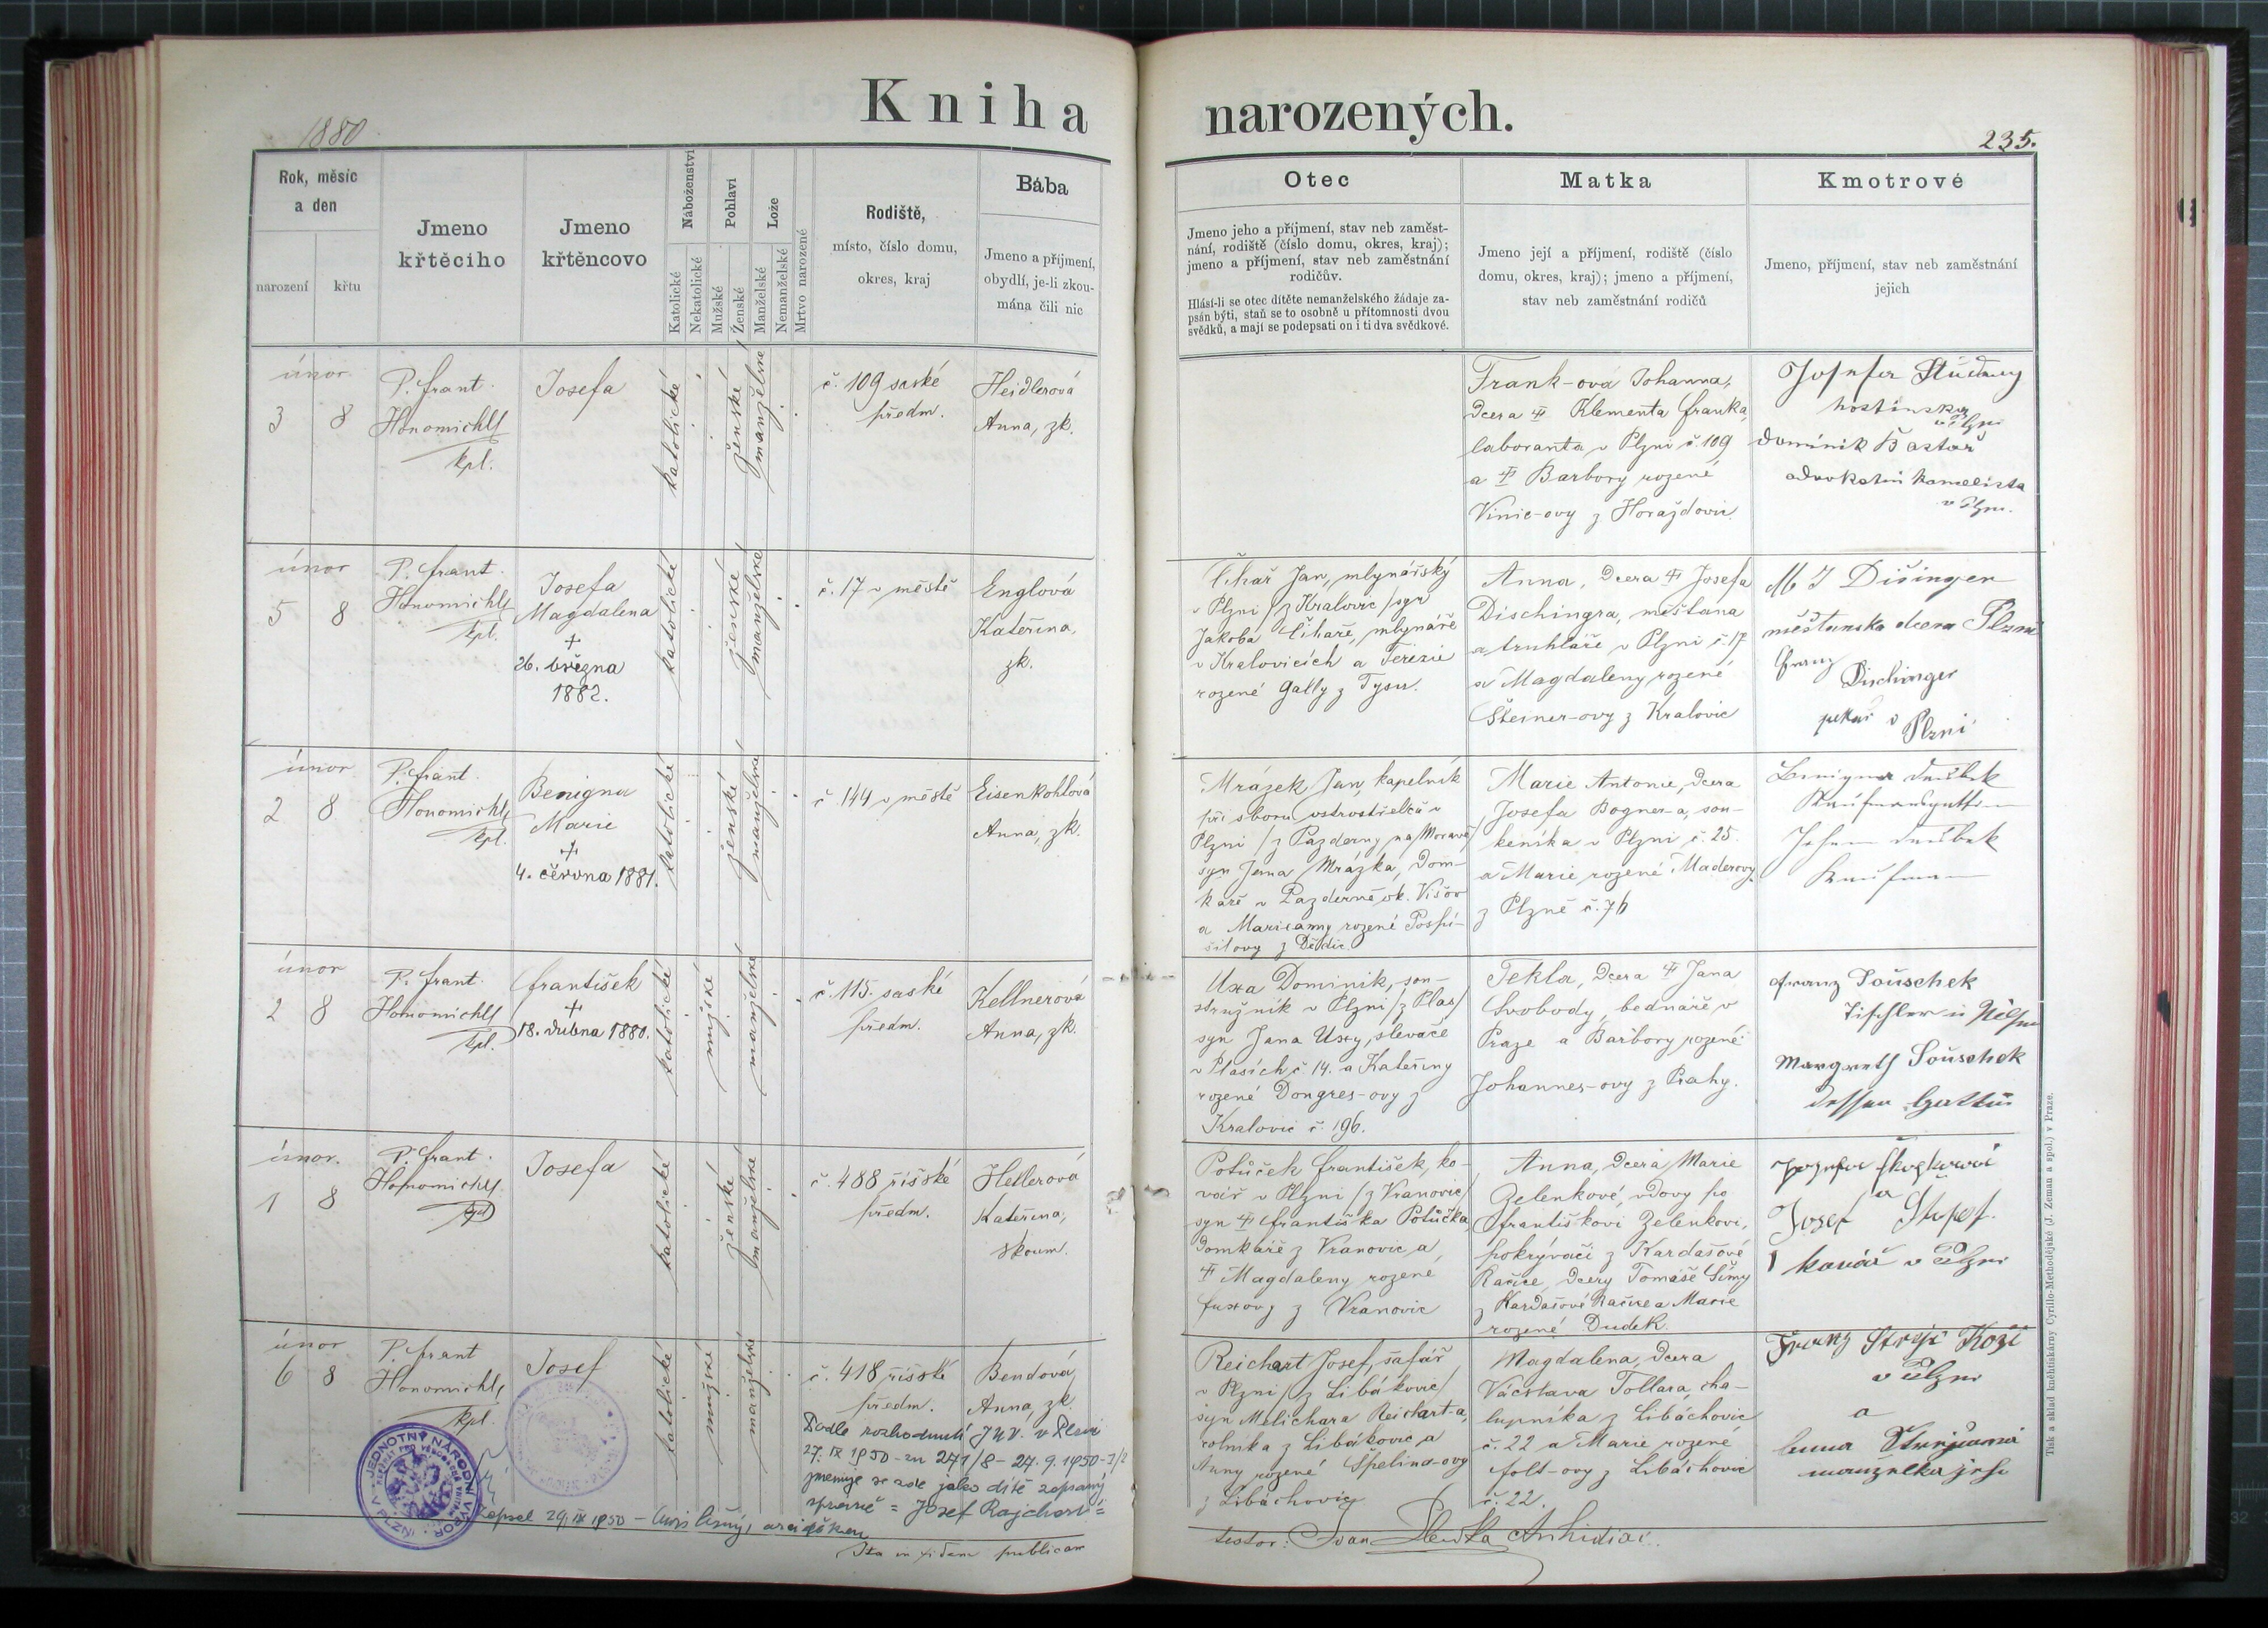 Kniha narozených.
1880
235.
Rok, měsíc
a den
narození
křtu
Jmeno
křtěcího
Jmeno
křtěncovo
Náboženství
Katolické
Nekatolické
Pohlaví
Mužské
Ženské
Lože
Manželské
Nemanželské
Mrtvo narozené
Rodiště,
místo, číslo domu,
okres, kraj
Bába
Jmeno a příjmení,
obydlí, je-li zkou-
mána čili nic
Otec
Jmeno jeho a příjmení, stav neb zaměst-
nání, rodiště (číslo domu, okres, kraj);
jmeno a příjmení, stav neb zaměstnání
rodičův.
Hlásí-li se otec dítěte nemanželského žádaje za-
psán býti, staň se to osobně u přítomnosti dvou
svědků, a mají se podepsati on i ti dva svědkové.
Matka
Jmeno její a příjmení, rodiště (číslo
domu, okres, kraj); jmeno a příjmení,
stav neb zaměstnání rodičů
Kmotrové
Jmeno, příjmení, stav neb zaměstnání
jejich
únor
3 8
P. Frant.
Honomichl
kpl.
Josefa
katolické
ženské
č. 109 saské
předm.
Heidlerová
Anna, zk.
Frank-ová Johanna,
dcera Klementa Franka,
laboranta v Plzni č. 109
a Barbory rozené
Vinic-ovy z Horažďovic
hostinský
v Plzni
Dominik
v Plzni.
únor
5 8
P. Frant.
Honomichl
kpl.
Josefa
Magdalena
+
26. března
1882.
katolické
ženské
manželské
č. 17 v městě
Englová
Kateřina,
zk.
Čihař Jan, mlynářský
v Plzni /z Kralovic/ syn
Jakoba Čihaře, mlynáře
v Kralovicích a Terezie
rozené Gally z Tysu.
Anna, dcera Josefa
Dischingra, měšťana
a truhláře v Plzni č. 17
a Magdaleny rozené
Steiner-ovy z Kralovic
M J Dišinger
měšťanská dcera Plzni
Franz
Dischinger
pekař v Plzni
únor
2 8
P. Frant.
Honomichl
kpl.
Benigna
Marie
+
4. června 1881.
katolické
ženské
manželské
č. 144 v městě
Eisenkohlová
Anna, zk.
Mrázek Jan, kapelník
při sboru ostrostřelců v
Plzni /z Pazderny na Moravě/
syn Jana Mrázka, dom-
káře v Pazderně ok. Višov
a Marianny rozené Pospí-
šilovy z Dědic.
Marie Antonie, dcera
Josefa Bogner-a, sou-
keníka v Plzni č. 25.
a Marie rozené Maderovy
z Plzně č. 76
únor
2 8
P. Frant.
Honomichl
kpl.
František
+
18. dubna 1880.
katolické
mužské
manželské
č. 115. saské
předm.
Kellnerová
Anna, zk.
Uxa Dominik, sou-
stružník v Plzni /z Plas/
syn Jana Uxy, slevače
v Plasích č. 14. a Kateřiny
rozené Dongres-ovy z
Kralovic č. 196.
Tekla, dcera Jana
Svobody, bednáře v
Praze a Barbory rozené
Johannes-ovy z Prahy.
Franz Souschek
Tischler in Pilsen
Margareth Souschek
dessen Gattin
únor.
1 8
P. Frant.
Honomichl
kpl
Josefa
katolické
ženské
manželské
č. 488 říšské
předm.
Hellerová
Kateřina,
zkoum.
Potůček František, ko-
vář v Plzni /z Vranovic/
syn Františka Potůčka,
domkáře z Vranovic a
Magdaleny rozené
Fuxovy z Vranovic
Anna, dcera Marie
Zelenkové, vdovy po
Františkovi Zelenkovi,
pokrývači z Kardašové
Řečice, dcery Tomáše Šímy
z Kardašové Řečice a Marie
rozené Dudek.
a
Josef
kovář v Plzni
únor
6 8
P. Frant
Honomichl
kpl.
Josef
katolické
mužské
manželské
č. 418 říšské
předm.
Bendová
Anna, zk.
Reichart Josef, šafář
v Plzni /z Libákovic/
syn Melichara Reichart-a,
rolníka z Libákovic a
Anny rozené Špelina-ovy
z Libáchovic
Magdalena, dcera
Václava Tollara, cha-
lupníka z Libáchovic
č. 22 a Marie rozené
Folt-ovy z Libáchovic
č. 22.
Franz
v Plzni
a
manželka jeho
Podle rozhodnutí JNV. v Plzni
27. IX 1950 zn 271/8 - 27. 9. 1950
jmenuje se zde jako dítě zapsaný
správně = Josef Rajchart =
Zapsal 29. IX 1950
JEDNOTNÝ NÁRODNÍ VÝBOR V PLZNI
Ita in fidem publicam
testor: Ivan Archidiac.
Tisk a sklad kněhtiskárny Cyrillo-Methodějské (J. Zeman a spol.) v Praze.